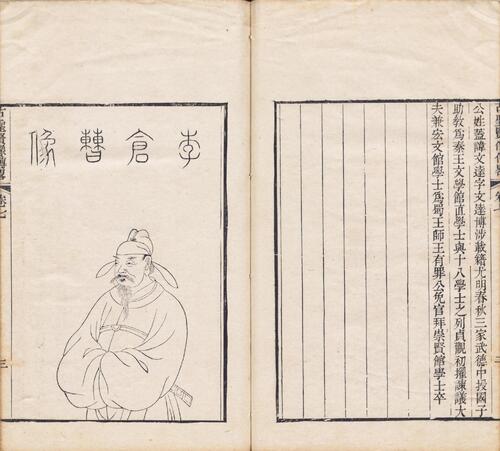 古聖賢像傳畧 卷七 二
公姓蓋諱文達字文達博涉載籍尤明春秋三家武德中授國子
助教爲秦王文學館直學士與十八學士之列貞觀初擢諫議大
夫兼宏文館學士爲蜀王師王有罪公免官拜崇賢館學士卒
李倉曹像
古聖賢像傳畧 卷七 三